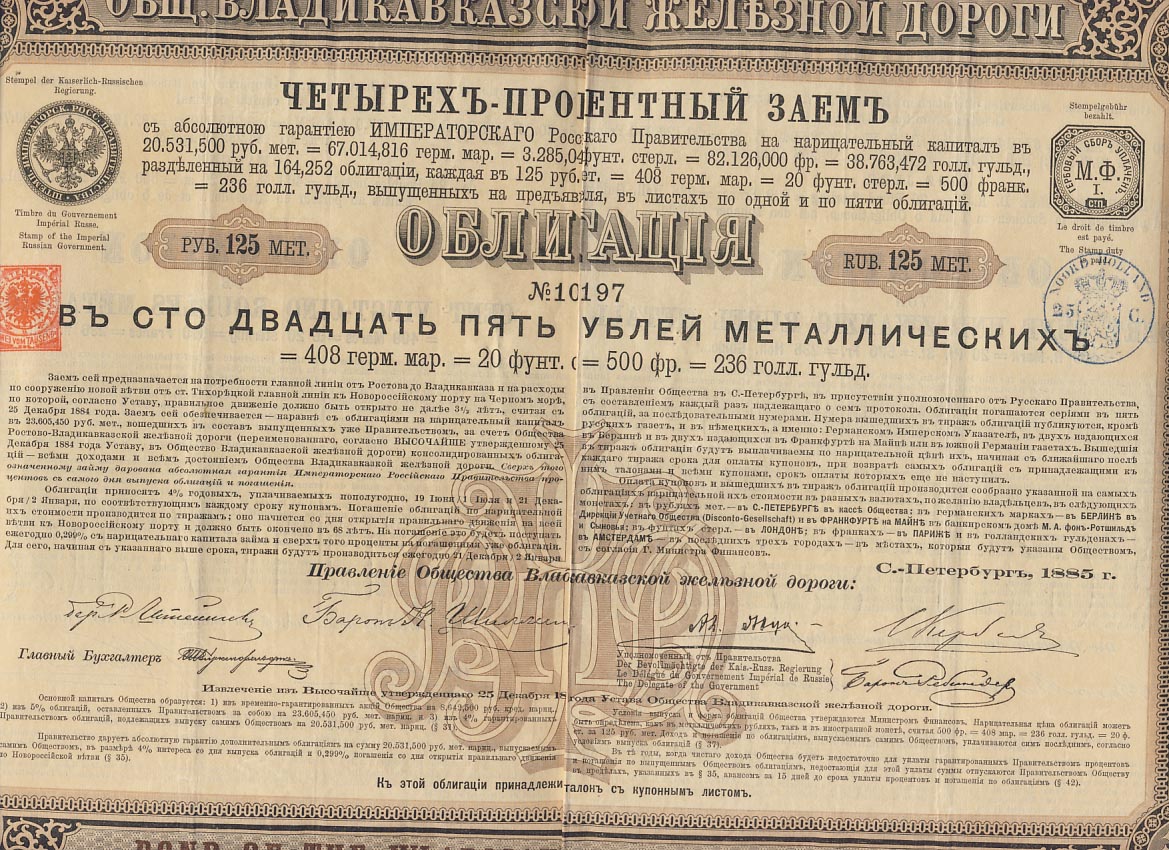 ОБЩ. ВЛАДИКАВКАЗСКОЙ ЖЕЛѢЗНОЙ ДОРОГИ
Stempel der Kaiserlich-Russischen
Regierung.
ЧЕТЫРЕХЪ-ПРО ЕНТНЫЙ ЗАЕМЪ
Stempelgebühr
bezahlt.
съ абсолютною гарантіею ИМПЕРАТОРСКАГО Росс каго Правительства на нарицательный капиталъ въ
20.531,500 руб. мет. = 67.014,816 герм. мар. = 3.285,04 фунт. стерл. = 82.126,000 фр. = 38.763,472 голл. гульд.,
раздѣленный на 164,252 облигаціи, каждая въ 125 руб. эт. = 408 герм. мар. = 20 фунт. стерл. = 500 франк.
= 236 голл. гульд., выпущенныхъ на предъяв ля, въ листахъ по одной и по пяти облигацій.
ГЕРБОВЫЙ СБОРЪ УПЛАЧЕНЪ
М.Ф.
I.
СП.
Timbre du Gouvernement
Impérial Russe.
Stamp of the Imperial
Russian Government.
Le droit de timbre
est payé.
The Stamp duty
РУБ. 125 МЕТ.
ОБЛИГАЦІЯ
RUB. 125 МЕТ.
№10197
NOORD-HOLLAND
25 C.
ВЪ СТО ДВАДЦАТЬ ПЯТЬ УБЛЕЙ МЕТАЛЛИЧЕСКИХЪ
= 408 герм. мар. = 20 фунт. с = 500 фр. = 236 голл. гульд.
Заемъ сей предназначается на потребности главной линіи отъ Ростова до Владикавказа и на расходы
по сооруженію новой вѣтви отъ ст. Тихорѣцкой главной линіи къ Новороссійскому порту на Черномъ морѣ,
по которой, согласно Уставу, правильное движеніе должно быть открыто не далѣе 3½ лѣтъ, считая съ
25 Декабря 1884 года. Заемъ сей обезпечивается — наравнѣ съ облигаціями на нарицательный капиталъ
въ 23.605,450 руб. мет., вошедшихъ въ составъ выпущенныхъ уже Правительствомъ, за счетъ Общества
Ростово-Владикавказской желѣзной дороги (переименованнаго, согласно ВЫСОЧАЙШЕ утвержденному 25
Декабря 1884 года Уставу, въ Общество Владикавказской желѣзной дороги) консолидированныхъ облига-
цій — всѣми доходами и всѣмъ достояніемъ Общества Владикавказской желѣзной дороги. Сверхъ того
означенному займу дарована абсолютная гарантія Императорскаго Россійскаго Правительства про-
центовъ съ самого дня выпуска облигацій и погашенія.
Облигаціи приносятъ 4% годовыхъ, уплачиваемыхъ пополугодно, 19 Іюня / 1 Іюля и 21 Дека-
бря / 2 Января, по соотвѣтствующимъ каждому сроку купонамъ. Погашеніе облигацій по нарицательной
ихъ стоимости производится по тиражамъ; оно начнется со дня открытія правильнаго движенія на всей
вѣтви къ Новороссійскому порту и должно быть окончено въ 68 лѣтъ. На погашеніе это будетъ поступать
ежегодно 0,299% съ нарицательнаго капитала займа и сверхъ того проценты на погашенныя уже облигаціи.
Для сего, начиная съ указаннаго выше срока, тиражи будутъ производиться ежегодно 21 Декабря / 2 Января
въ Правленіи Общества въ С.-Петербургѣ, въ присутствіи уполномоченнаго отъ Русскаго Правительства,
съ составленіемъ каждый разъ надлежащаго о семъ протокола. Облигаціи погашаются серіями въ пять
облигацій, за послѣдовательными нумерами. Нумера вышедшихъ въ тиражъ облигацій публикуются, кромѣ
русскихъ газетъ, и въ нѣмецкихъ, а именно: въ Германскомъ Имперскомъ Указателѣ, въ двухъ издающихся
въ Берлинѣ и въ двухъ издающихся въ Франкфуртѣ на Майнѣ или въ южной Германіи газетахъ. Вышедшія
въ тиражъ облигаціи будутъ выплачиваемы по нарицательной цѣнѣ ихъ, начиная съ ближайшаго послѣ
каждаго тиража срока для оплаты купоновъ, при возвратѣ самыхъ облигацій съ принадлежащими къ
нимъ талонами и всѣми купонами, срокъ оплаты которыхъ еще не наступилъ.
Оплата купоновъ и вышедшихъ въ тиражъ облигацій производится сообразно указанной на самыхъ
облигаціяхъ нарицательной ихъ стоимости въ разныхъ валютахъ, по желанію владѣльцевъ, въ слѣдующихъ
монетахъ: въ рубляхъ мет. — въ С.-ПЕТЕРБУРГѢ въ кассѣ Общества; въ германскихъ маркахъ — въ БЕРЛИНѢ въ
Дирекціи Учетнаго Общества (Disconto-Gesellschaft) и въ ФРАНКФУРТѢ НА МАЙНѢ въ банкирскомъ домѣ М. А. фонъ-Ротшильдъ
и Сыновья; въ фунтахъ стерл. — въ ЛОНДОНѢ; въ франкахъ — въ ПАРИЖѢ и въ голландскихъ гульденахъ —
въ АМСТЕРДАМѢ — въ послѣднихъ трехъ городахъ — въ мѣстахъ, которыя будутъ указаны Обществомъ,
съ согласія Г. Министра Финансовъ.
С.-Петербургъ, 1885 г.
Правленіе Общества Владикавказской желѣзной дороги:
Главный Бухгалтеръ
Уполномоченный отъ Правительства
Der Bevollmächtigte der Kais.-Russ. Regierung
Le Délégué du Gouvernement Impérial de Russie
The Delegate of the Government
Извлеченіе изъ Высочайше утвержденнаго 25 Декабря 18 года Устава Общества Владикавказской желѣзной дороги.
Основной капиталъ Общества образуется: 1) изъ временно-гарантированныхъ акцій Общества на 8,649,500 руб. кред. нариц.,
2) изъ 5% облигацій, оставленныхъ Правительствомъ за собою на 23.605,450 руб. мет. нариц. и 3) изъ 4% гарантированныхъ
Правительствомъ облигацій, подлежащихъ выпуску самимъ Обществомъ на 20.531,500 руб. мет. нариц. (§ 31).
Правительство даруетъ абсолютную гарантію дополнительнымъ облигаціямъ на сумму 20.531,500 руб. мет. нариц., выпускаемымъ
самимъ Обществомъ, въ размѣрѣ 4% интереса со дня выпуска облигацій и 0,299% погашенія со дня открытія правильнаго движенія
по Новороссійской вѣтви (§ 35).
Условія выпуска и форма облигацій Общества утверждаются Министромъ Финансовъ. Нарицательная цѣна облигацій можетъ
быть опредѣлена, какъ въ металлическихъ рубляхъ, такъ и въ иностранной монетѣ, считая 500 фр. = 408 мар. = 236 голл. гульд. = 20 ф.
ст. за 125 руб. мет. Доходъ и погашеніе по облигаціямъ, выпускаемымъ самимъ Обществомъ, уплачиваются симъ послѣднимъ, согласно
условіямъ выпуска облигацій (§ 37).
Въ тѣ годы, когда чистаго дохода Общества будетъ недостаточно для уплаты гарантированныхъ Правительствомъ процентовъ
и погашенія по выпущеннымъ Обществомъ облигаціямъ, недостающія для этой уплаты суммы отпускаются Правительствомъ Обществу
въ предѣлахъ, указанныхъ въ § 35, авансомъ за 15 дней до срока уплаты процентовъ и погашенія по облигаціямъ (§ 42).
Къ этой облигаціи принадлежи талонъ съ купоннымъ листомъ.
BOND OF THE